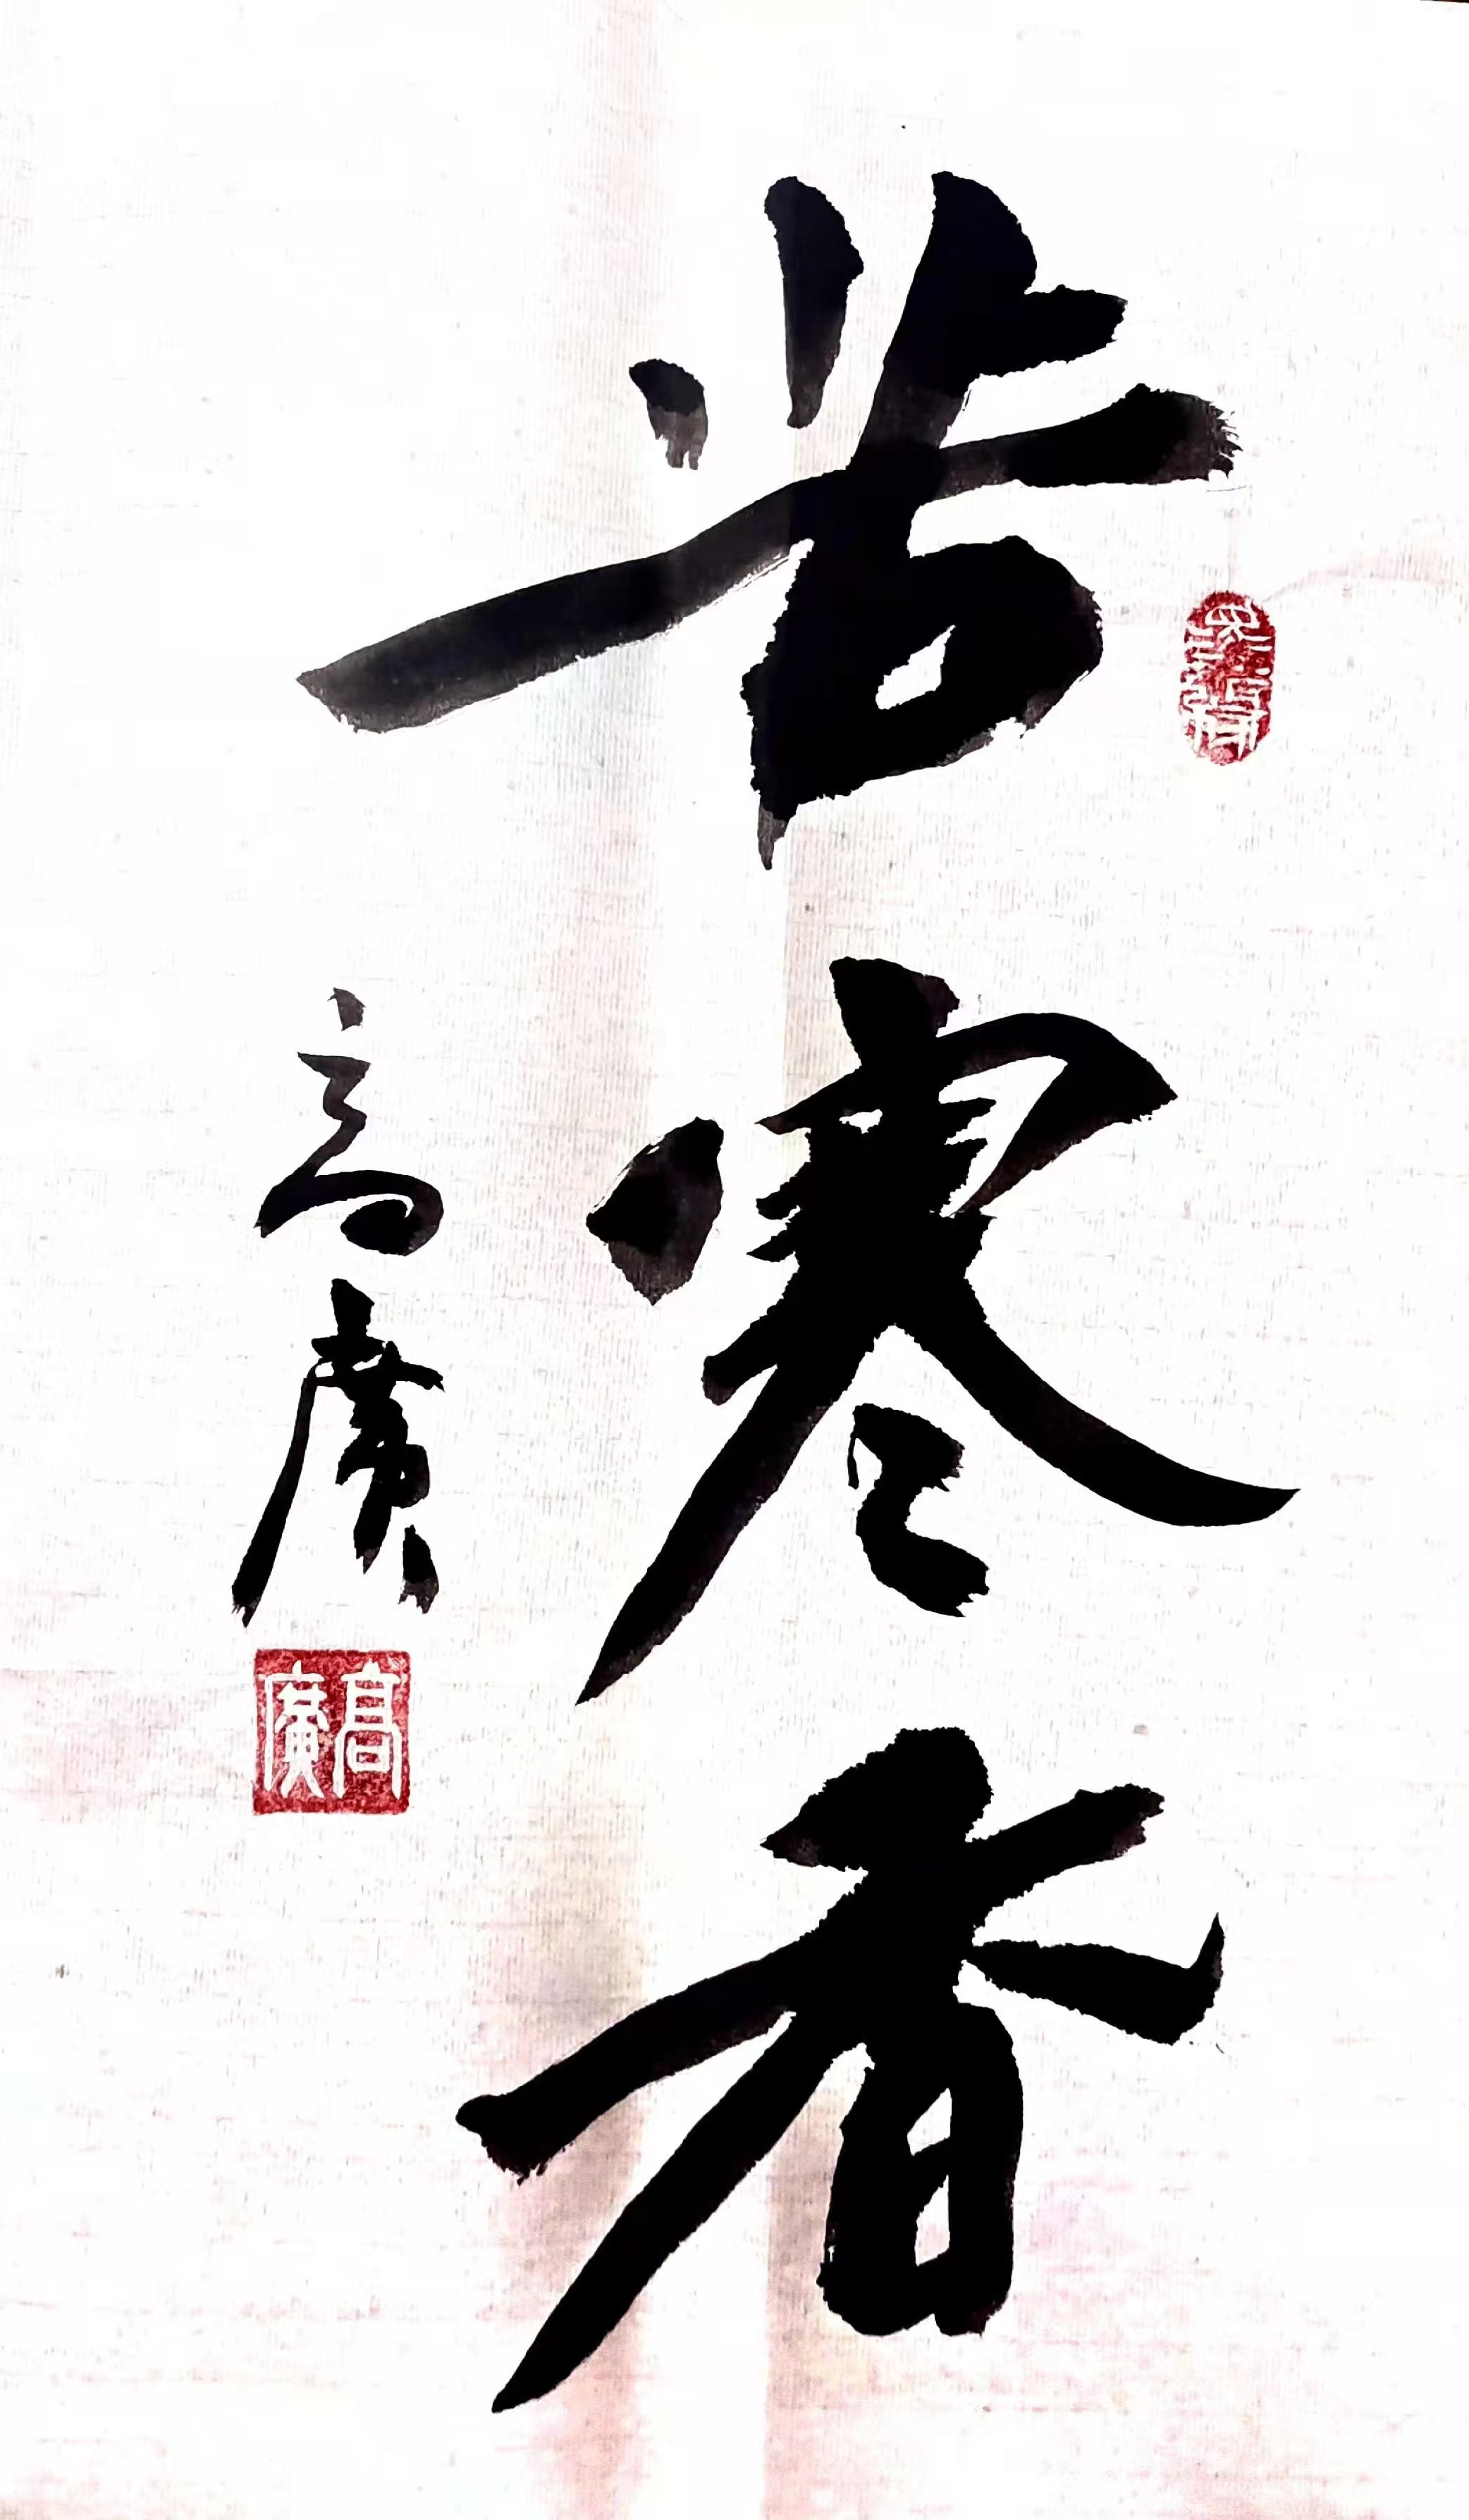 苦寒香
高廣
高廣